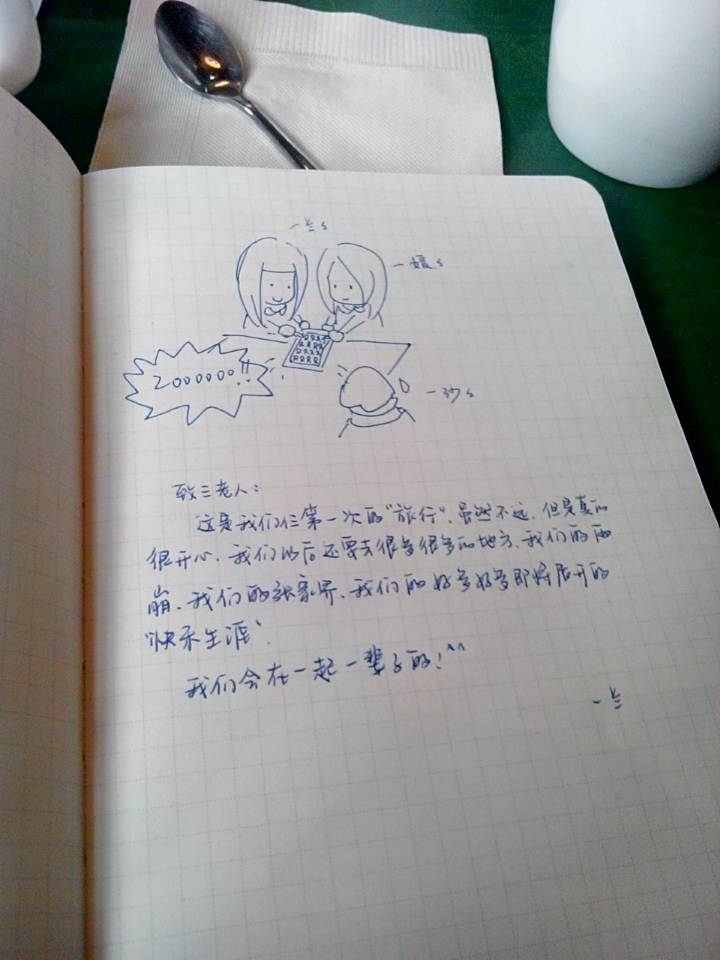 一兰s
一媛s
2000000!!
一沙s
致三老人:
这是我们仨第一次的"旅行".虽然不远.但是真的
很开心.我们以后还要去很多很多的地方.我们的雨
崩.我们的张家界.我们的好多好多即将展开的
"快乐生涯".
我们会在一起一辈子的!^^
一兰